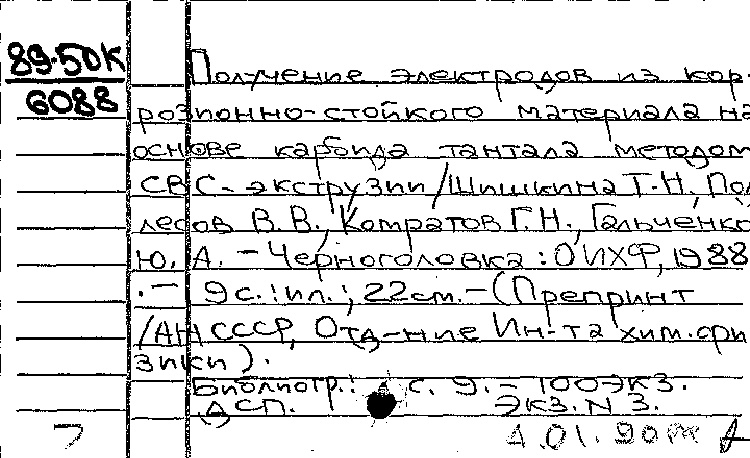 89-50К
6088
Получение электродов из кор-
розионно-стойкого материала на
основе карбида тантала методом
СВС-экструзии/Шишкина Т.Н., Под
лесов В.В., Комратов Г.Н., Гальченко
Ю.А. – Черноголовка: ОИХФ, 1988
. – 9 с.: ил.; 22 см. – (Препринт
/АН СССР, Отд-ние Ин-та хим. фи
зики).
Библиогр.: с. 9. – 100 экз.
ДСП. ЭКЗ. N 3.